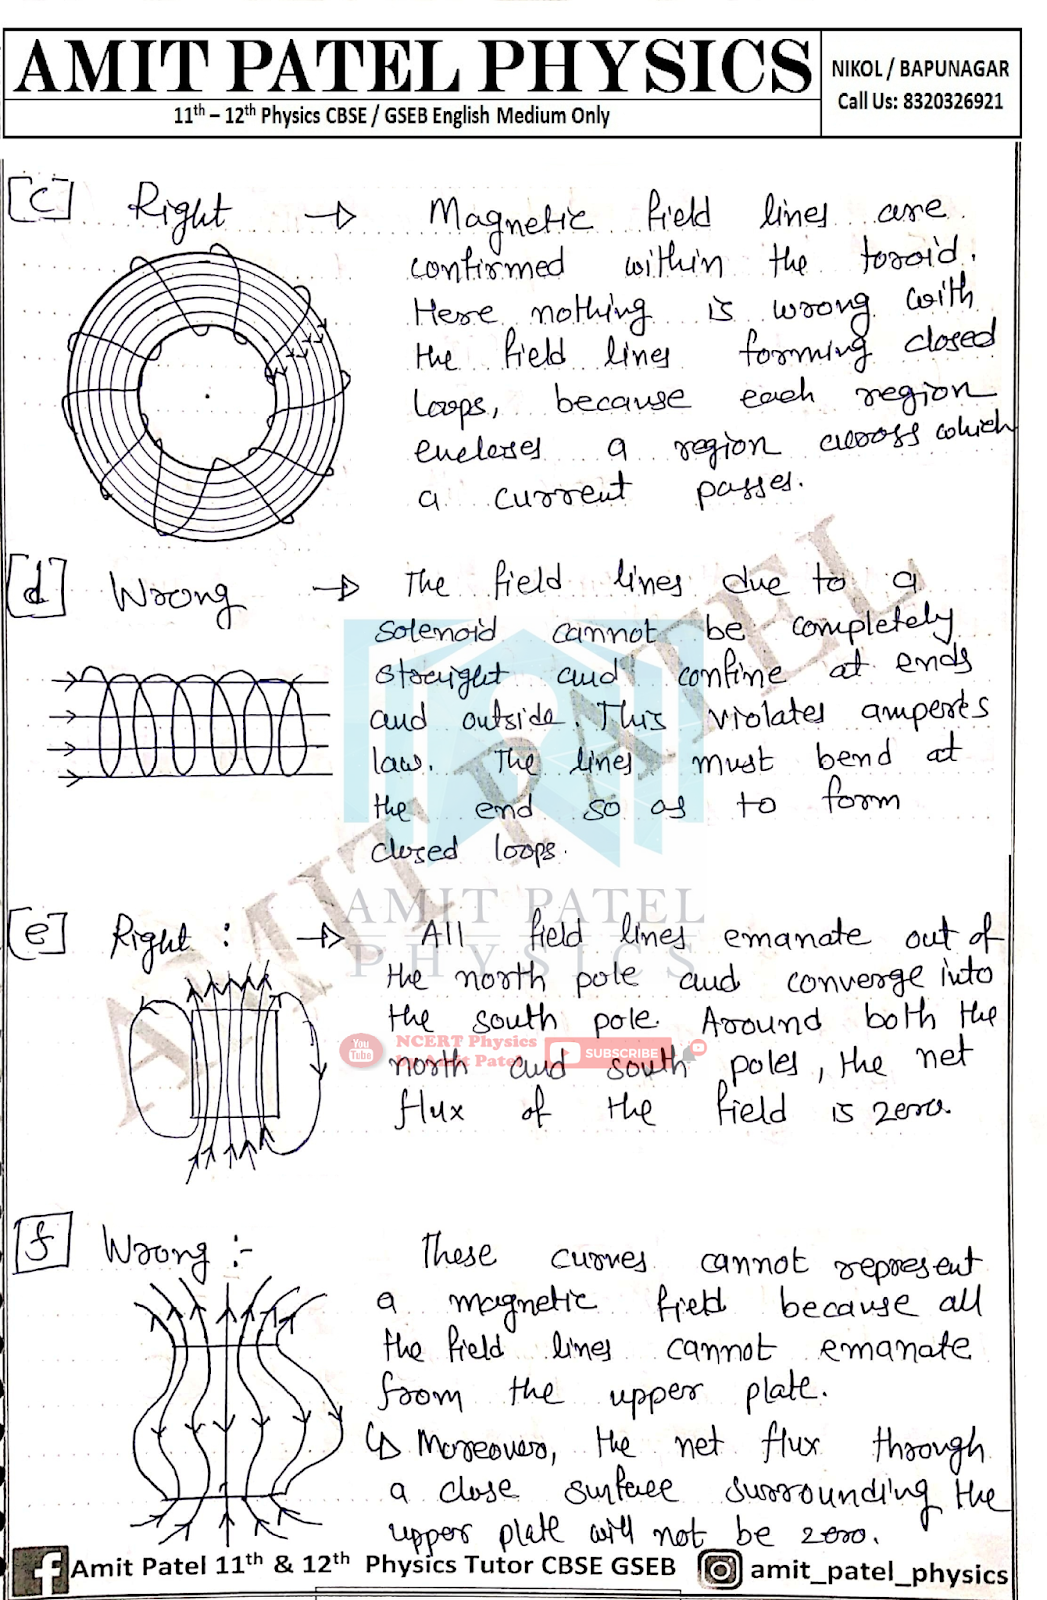 AMIT PATEL PHYSICS
11th – 12th Physics CBSE / GSEB English Medium Only
NIKOL / BAPUNAGAR
Call Us: 8320326921
[c] Right → Magnetic field lines are
confirmed within the toroid.
Here nothing is wrong with
the field lines forming closed
loops, because each region
encloses a region across which
a current passes.
[d] Wrong → The field lines due to a
solenoid cannot be completely
straight and confine at ends
and outside. This violates amperes
law. The lines must bend at
the end so as to form
closed loops.
AMIT PATEL
PHYSICS
AMIT PATEL
[e] Right : → All field lines emanate out of
the north pole and converge into
the south pole. Around both the
north and south poles, the net
flux of the field is zero.
You Tube
NCERT Physics
by Amit Patel
SUBSCRIBE
[f] Wrong :- These curves cannot represent
a magnetic field because all
the field lines cannot emanate
from the upper plate.
↳ Moreover, the net flux through
a close surface surrounding the
upper plate will not be zero.
Amit Patel 11th & 12th Physics Tutor CBSE GSEB
amit_patel_physics